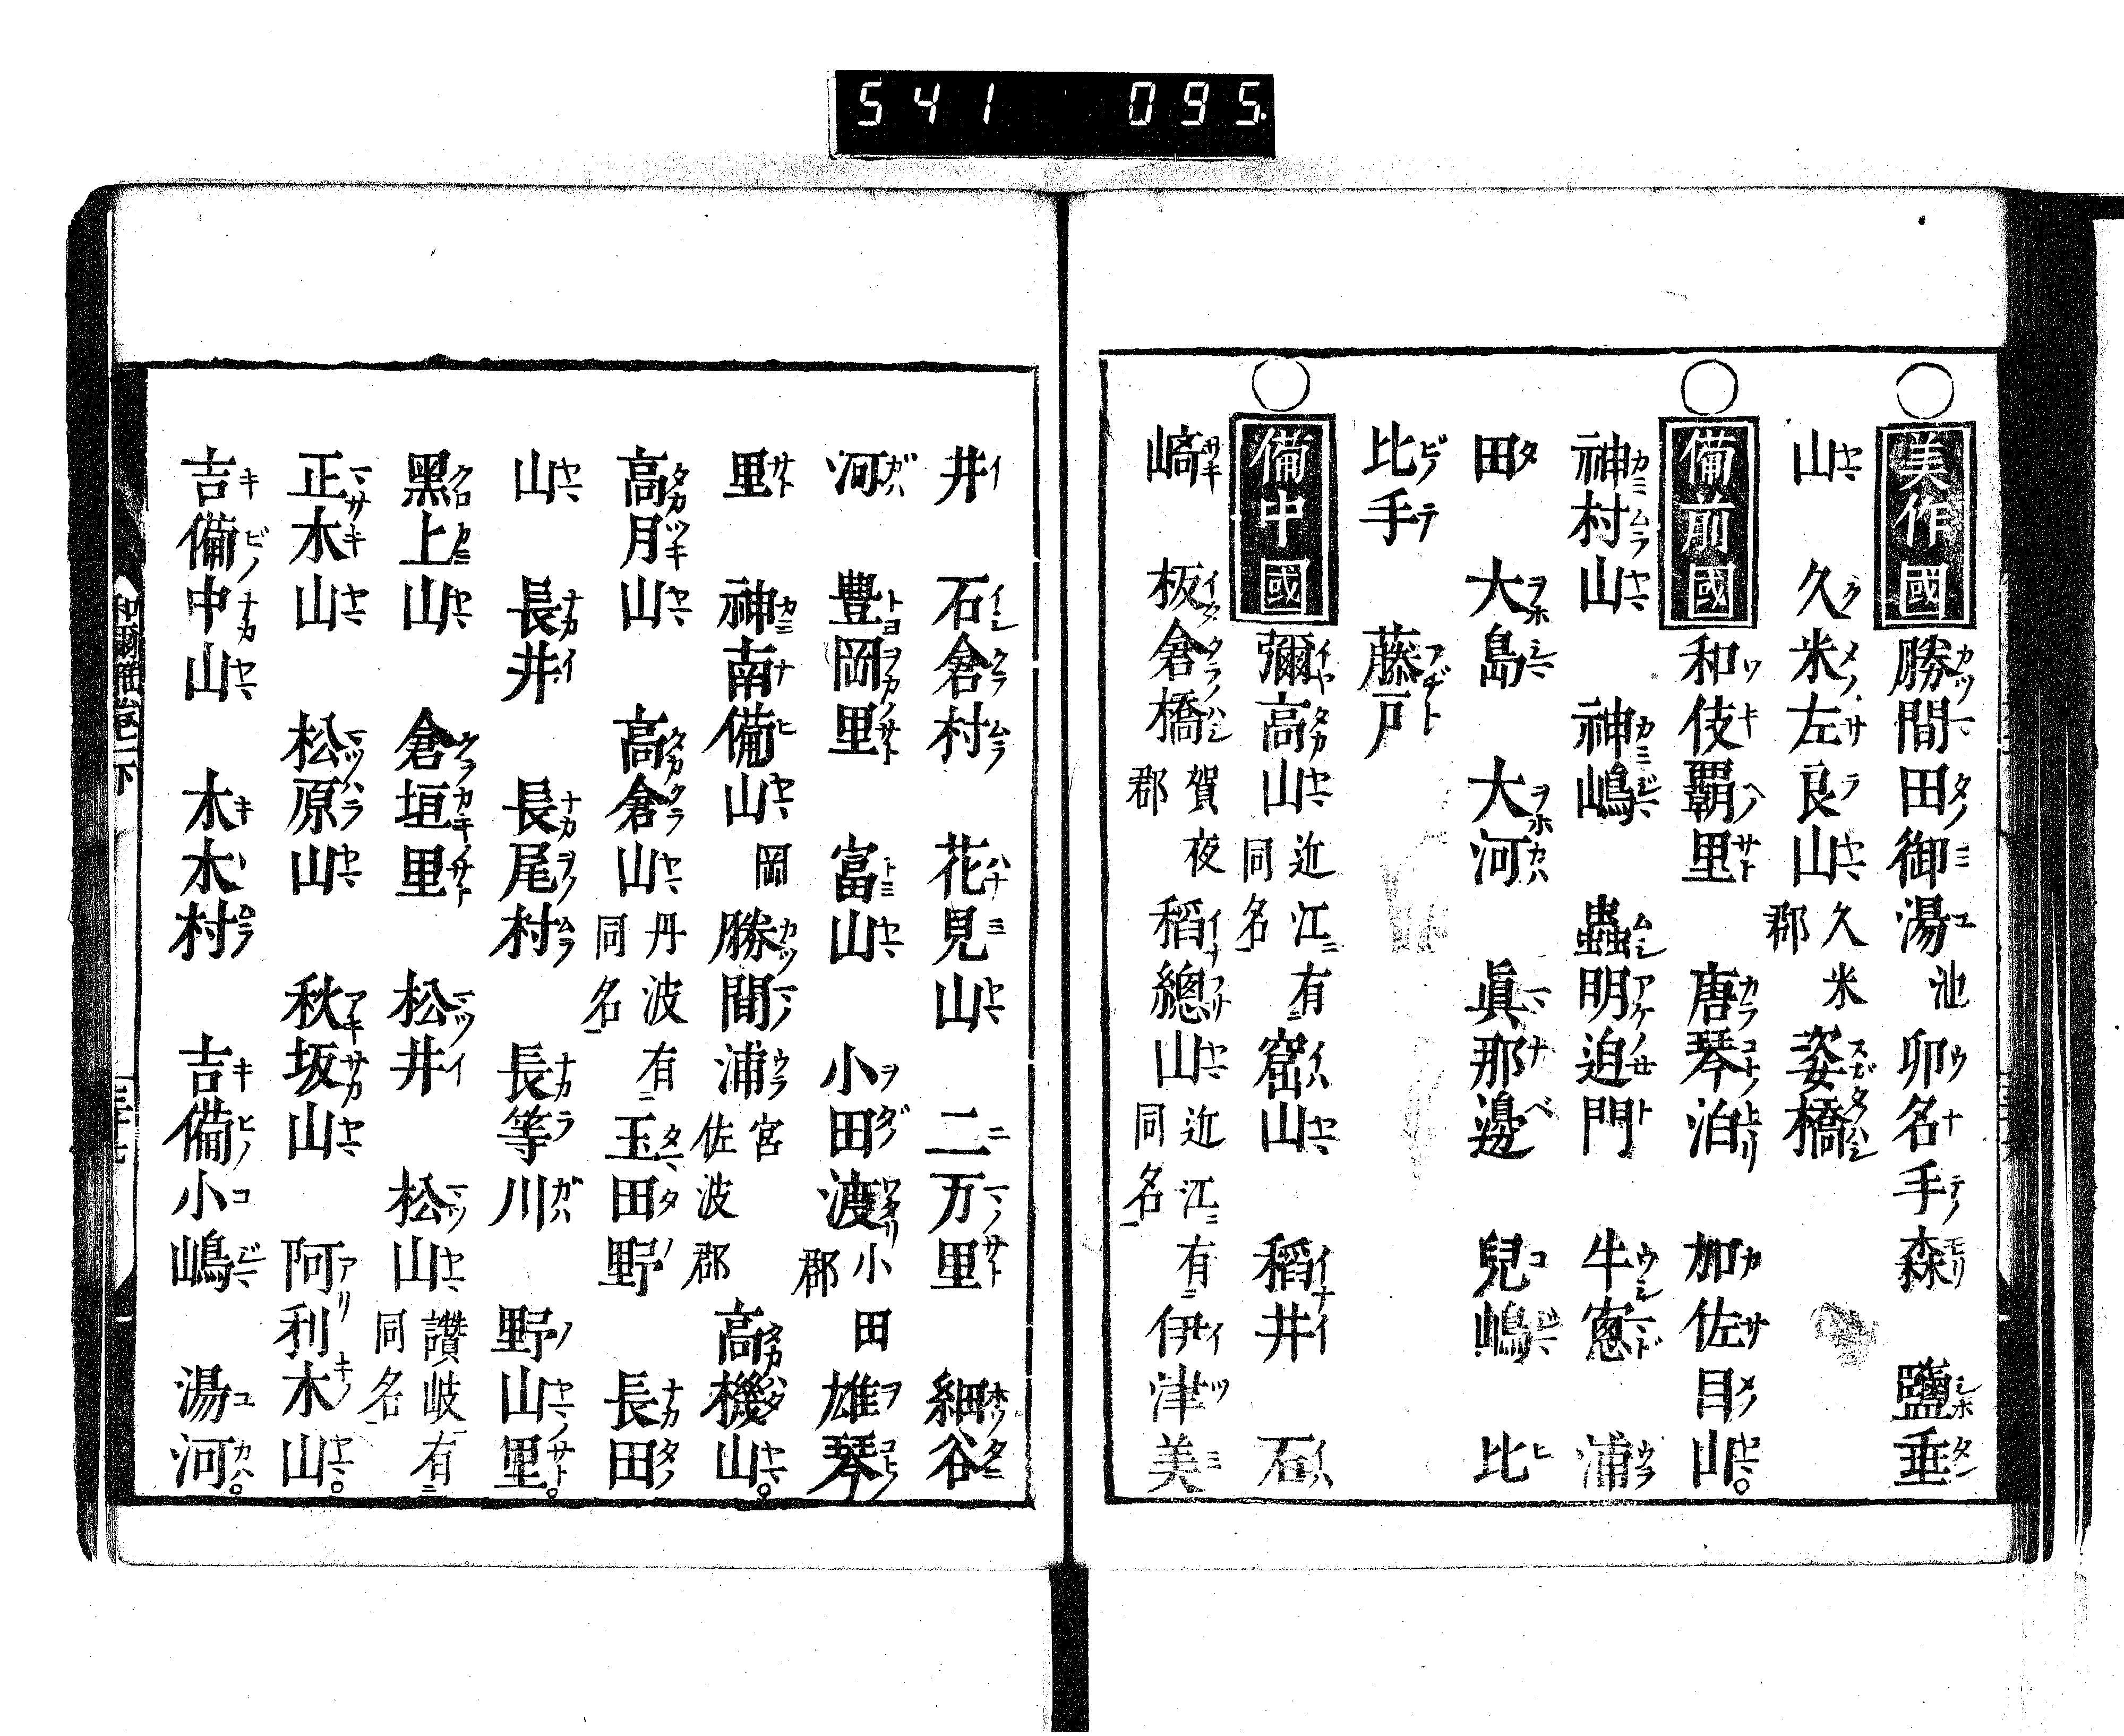 541 095.
○美作國 勝間田御湯池 卯名手森 鹽垂
山 久米左良山久米郡 姿橋
○備前國 和伎覇里 唐琴泊 加佐目山
神村山 神嶋 蟲明迫門 牛窓浦
田 大島 大河 眞那邊 兒嶋 比
比手 藤戸
○備中國 彌高山近江ニ有同名 窟山 稻井 石
崎 板倉橋賀夜郡 稻總山近江ニ有同名 伊津美
井 石倉村 花見山 二万里 細谷
河 豊岡里 富山 小田渡小田郡 雄琴
里 神南備山 岡 勝間浦宮佐波郡 高機山
高月山 高倉山丹波有ニ同名 玉田野 長田
山 長井 長尾村 長等川 野山里
黑上山 倉垣里 松井 松山讃岐有ニ同名
正木山 松原山 秋坂山 阿利木山
吉備中山 木木村 吉備小嶋 湯河
和爾雅卷二下